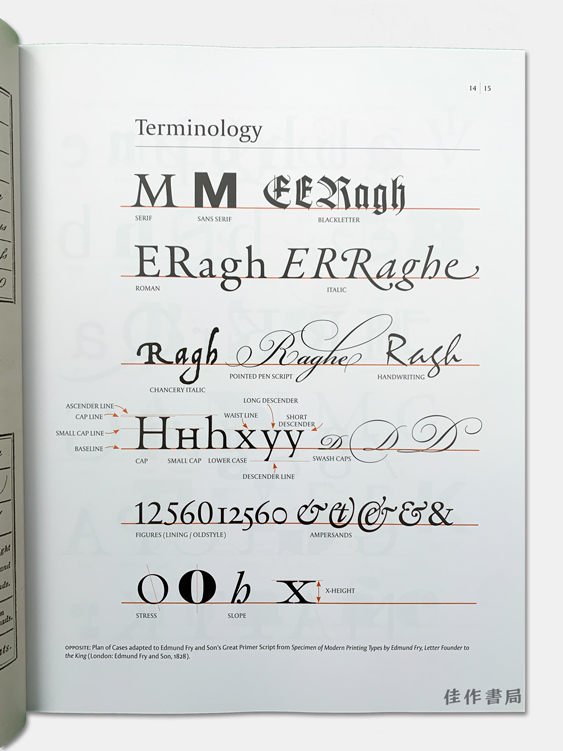 14 | 15
Terminology
M M EERagh
SERIF SANS SERIF BLACKLETTER
ERagh ERRaghe
ROMAN ITALIC
Ragh Raghe Ragh
CHANCERY ITALIC POINTED PEN SCRIPT HANDWRITING
ASCENDER LINE
CAP LINE
SMALL CAP LINE
BASELINE
LONG DESCENDER
WAIST LINE
SHORT
DESCENDER
HHhxyy D D D
CAP SMALL CAP LOWER CASE SWASH CAPS
DESCENDER LINE
1256012560 & & & & &
FIGURES (LINING / OLDSTYLE) AMPERSANDS
O O h x X-HEIGHT
STRESS SLOPE
OPPOSITE: Plan of Cases adapted to Edmund Fry and Son's Great Primer Script from Specimen of Modern Printing Types by Edmund Fry, Letter Founder to
the King (London: Edmund Fry and Son, 1828).
佳作書局